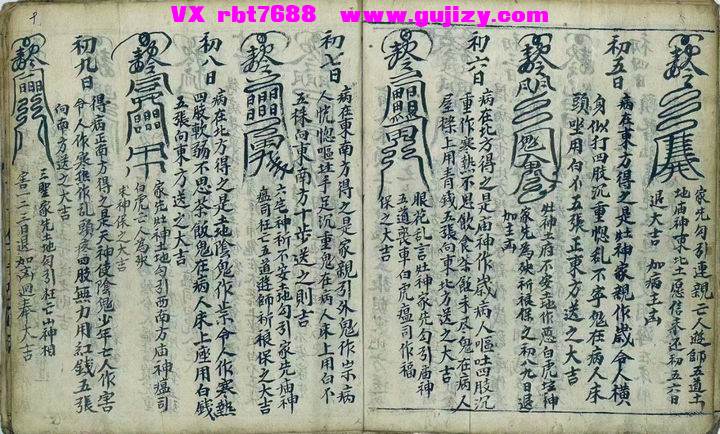 VX rbt7688 www.gujizy.com
家先勾引連親亡人遊師五道土
地庙神東北土愿信奉还初五六日
退大吉 加病主凶
初五日
病在東方得之是灶神家親作歲令人橫
身似打四肢沉重惚乱不寧鬼在病人床
頭坐用白不五張正東方送之大吉
灶神土府不安土地作怒白虎坛神
家先為殃祈禳保之初八九日退
加主凶
初六日
病在北方得之是庙神作歲病人嘔吐四肢沉
重作寒熱不思飲食茶飯未尽鬼在病人
屋樑上用青錢五張向東北方送之大吉
眼花乱言灶神家先勾引庙神
五道喪車白虎瘟司作福
保之大吉
初七日
病在東南方得之是家親引外鬼作祟病
人恍惚嘔吐手足沉重鬼在病人床上用白不
五張向東南方十步送之则吉
六宅神祈不安土地勾引家先庙神
瘟司枉亡五道遊師祈禳保之大吉
初八日
病在北方得之是土地陰鬼作祟令人作寒熱
四肢軟弱不思茶飯鬼在病人床上座用白錢
五張向東方送之大吉
家先灶神土地勾引西南方庙神瘟司
白虎亡人為殃
神保之大吉
初九日
得病正南方得之是天神使陰鬼少年亡人作害
令人作寒熱作乱頭疼四肢無力用紅錢五張
向南方送之大吉
三聖家先土地勾引枉亡山神相
害一二三日退加重迴奉大吉